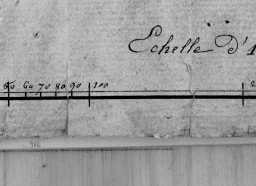 Echelle D'1
50 60 70 80 90 100